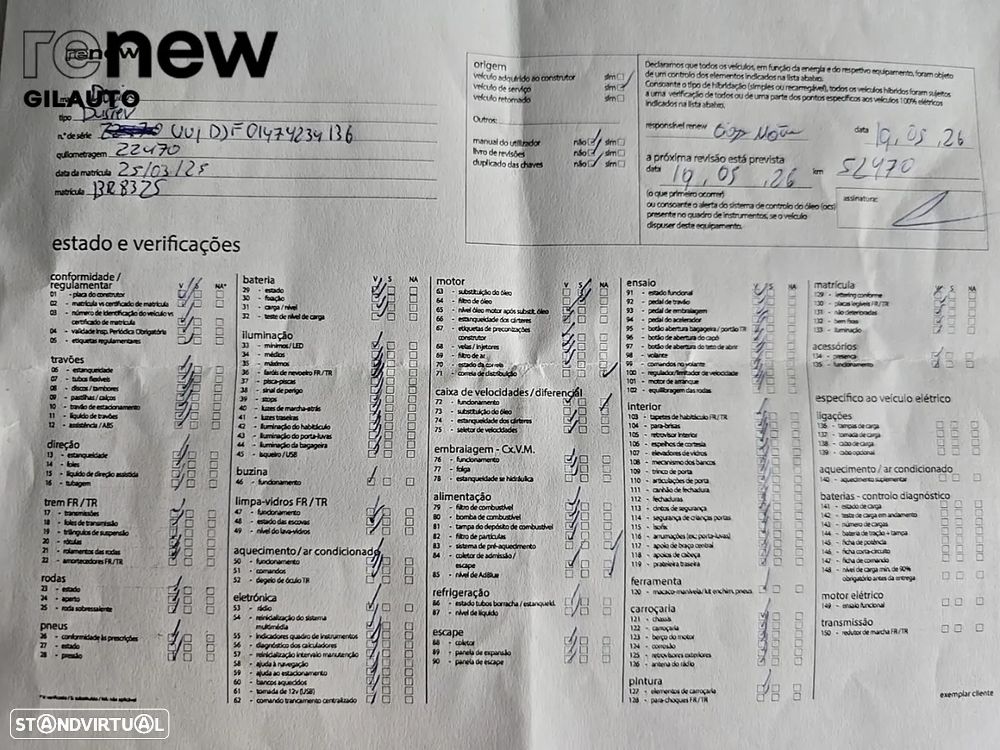 renew
renew
GILAUTO
tipo Duster
n.º de série UU1DJF01474234136
quilometragem 22470
data da matrícula 25/03/25
matrícula BR83ZS
origem
veículo adquirido ao construtor sim
veículo de serviço sim
veículo retomado sim
Outros:
manual do utilizador não sim
livro de revisões não sim
duplicado das chaves não sim
Declaramos que todos os veículos, em função da energia e do respetivo equipamento, foram objeto
de um controlo dos elementos indicados na lista abaixo.
Consoante o tipo de hibridação (simples ou recarregável), todos os veículos híbridos foram sujeitos
a uma verificação de todos ou de uma parte dos pontos específicos aos veículos 100% elétricos
indicados na lista abaixo.
responsável renew data 19,05,26
a próxima revisão está prevista
data 19,05,26 km 52470
(o que primeiro ocorrer)
ou consoante o alerta do sistema de controlo do óleo (ocs)
presente no quadro de instrumentos, se o veículo
dispuser deste equipamento.
assinatura:
estado e verificações
conformidade /
regulamentar V S NA*
01 - placa do construtor
02 - matrícula vs certificado de matrícula
03 - número de identificação do veículo vs
certificado de matrícula
04 - validade Insp. Periódica Obrigatória
05 - etiquetas regulamentares
travões
06 - estanqueidade
07 - tubos flexíveis
08 - discos / tambores
09 - pastilhas / calços
10 - travão de estacionamento
11 - líquido de travões
12 - assistência / ABS
direção
13 - estanqueidade
14 - foles
15 - líquido de direção assistida
16 - tubagem
trem FR / TR
17 - transmissões
18 - foles de transmissão
19 - triângulos de suspensão
20 - rótulas
21 - rolamentos das rodas
22 - amortecedores FR / TR
rodas
23 - estado
24 - aperto
25 - roda sobresselente
pneus
26 - conformidade às prescrições
27 - estado
28 - pressão
*V: verificado / S: substituído / NA: não aplicável
bateria V S NA
29 - estado
30 - fixação
31 - carga / nível
32 - teste de nível de carga
iluminação
33 - mínimos / LED
34 - médios
35 - máximos
36 - faróis de nevoeiro FR / TR
37 - pisca-piscas
38 - sinal de perigo
39 - stops
40 - luzes de marcha-atrás
41 - luzes traseiras
42 - iluminação do habitáculo
43 - iluminação do porta-luvas
44 - iluminação da bagageira
45 - isqueiro / USB
buzina
46 - funcionamento
limpa-vidros FR / TR
47 - funcionamento
48 - estado das escovas
49 - nível do lava-vidros
aquecimento / ar condicionado
50 - funcionamento
51 - comandos
52 - degelo de óculo TR
eletrónica
53 - rádio
54 - reinicialização do sistema
multimédia
55 - indicadores quadro de instrumentos
56 - diagnóstico dos calculadores
57 - reinicialização intervalo manutenção
58 - ajuda à navegação
59 - ajuda ao estacionamento
60 - bancos aquecidos
61 - tomada de 12v (USB)
62 - comando trancamento centralizado
motor V S NA
63 - substituição do óleo
64 - filtro de óleo
65 - nível óleo motor após substit. óleo
66 - estanqueidade dos cárteres
67 - etiquetas de preconizações
construtor
68 - velas / injetores
69 - filtro de ar
70 - estado da correia
71 - correia de distribuição
caixa de velocidades / diferencial
72 - funcionamento
73 - substituição do óleo
74 - estanqueidade dos cárteres
75 - seletor de velocidades
embraiagem - Cx.V.M.
76 - funcionamento
77 - folga
78 - estanqueidade se hidráulica
alimentação
79 - filtro de combustível
80 - bomba de combustível
81 - tampa do depósito de combustível
82 - filtro de partículas
83 - sistema de pré-aquecimento
84 - coletor de admissão /
escape
85 - nível de AdBlue
refrigeração
86 - estado tubos borracha / estanqueid.
87 - nível de líquido
escape
88 - coletor
89 - panela de expansão
90 - panela de escape
ensaio V S NA
91 - estado funcional
92 - pedal de travão
93 - pedal de embraiagem
94 - pedal do acelerador
95 - botão abertura bagageira / portão TR
96 - botão de abertura do capô
97 - botão de abertura do teto de abrir
98 - volante
99 - comandos no volante
100 - regulador/limitador de velocidade
101 - motor de arranque
102 - equilibragem das rodas
interior
103 - tapetes de habitáculo FR / TR
104 - para-brisas
105 - retrovisor interior
106 - espelhos de cortesia
107 - elevadores de vidros
108 - mecanismo dos bancos
109 - trinco de porta
110 - articulações de porta
111 - canhão de fechadura
112 - fechaduras
113 - cintos de segurança
114 - segurança de crianças portas
115 - isofix
116 - arrumações (ex: porta-luvas)
117 - apoio de braço central
118 - apoios de cabeça
119 - prateleira traseira
ferramenta
120 - macaco-manivela / kit enchim. pneus
carroçaria
121 - chassis
122 - carroçaria
123 - berço do motor
124 - corrosão
125 - retrovisores exteriores
126 - antena do rádio
pintura
127 - elementos de carroçaria
128 - para-choques FR / TR
matrícula V S NA
129 - lettering conforme
130 - placas legíveis FR / TR
131 - não deterioradas
132 - bem fixas
133 - iluminação
acessórios
134 - presença
135 - funcionamento
específico ao veículo elétrico
ligações
136 - tampas de carga
137 - tomada de carga
138 - cabo de carga
139 - cabo opcional
aquecimento / ar condicionado
140 - aquecimento suplementar
baterias - controlo diagnóstico
141 - estado de carga
142 - teste de carga em andamento
143 - número de cargas
144 - bateria de tração + tampa
145 - ficha de potência
146 - ficha corta-circuito
147 - ficha de comando
148 - nível de carga mín. de 90%
obrigatório antes da entrega
motor elétrico
149 - ensaio funcional
transmissão
150 - redutor de marcha FR / TR
exemplar cliente
STANDVIRTUAL